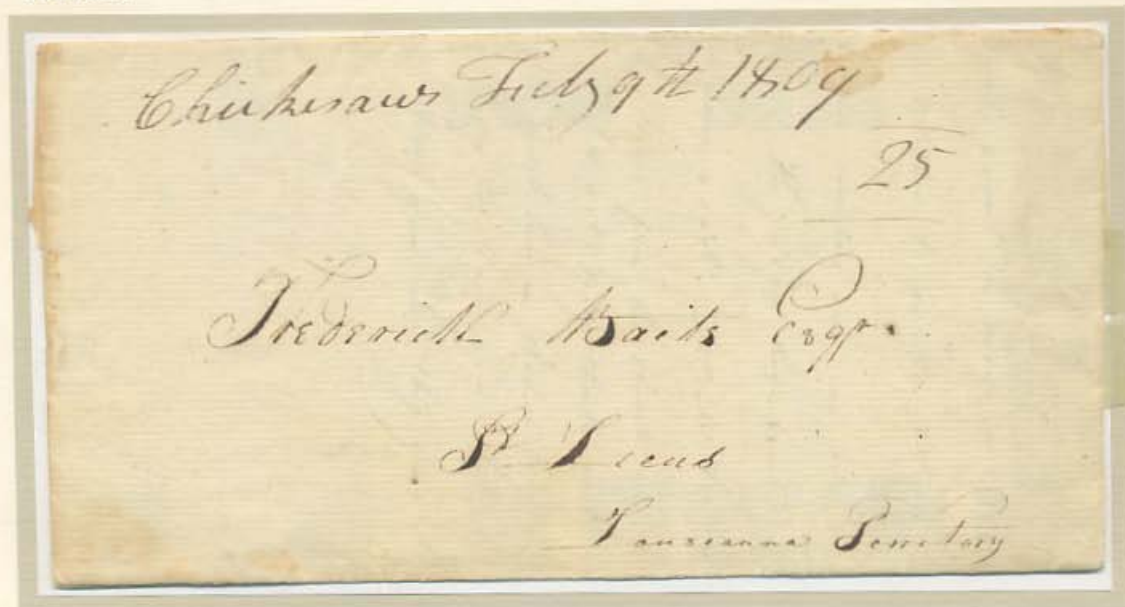 Chickesaws Feby 9th 1809
25
Frederick Baits Esqr.
St Louis
Lousianna Terretory